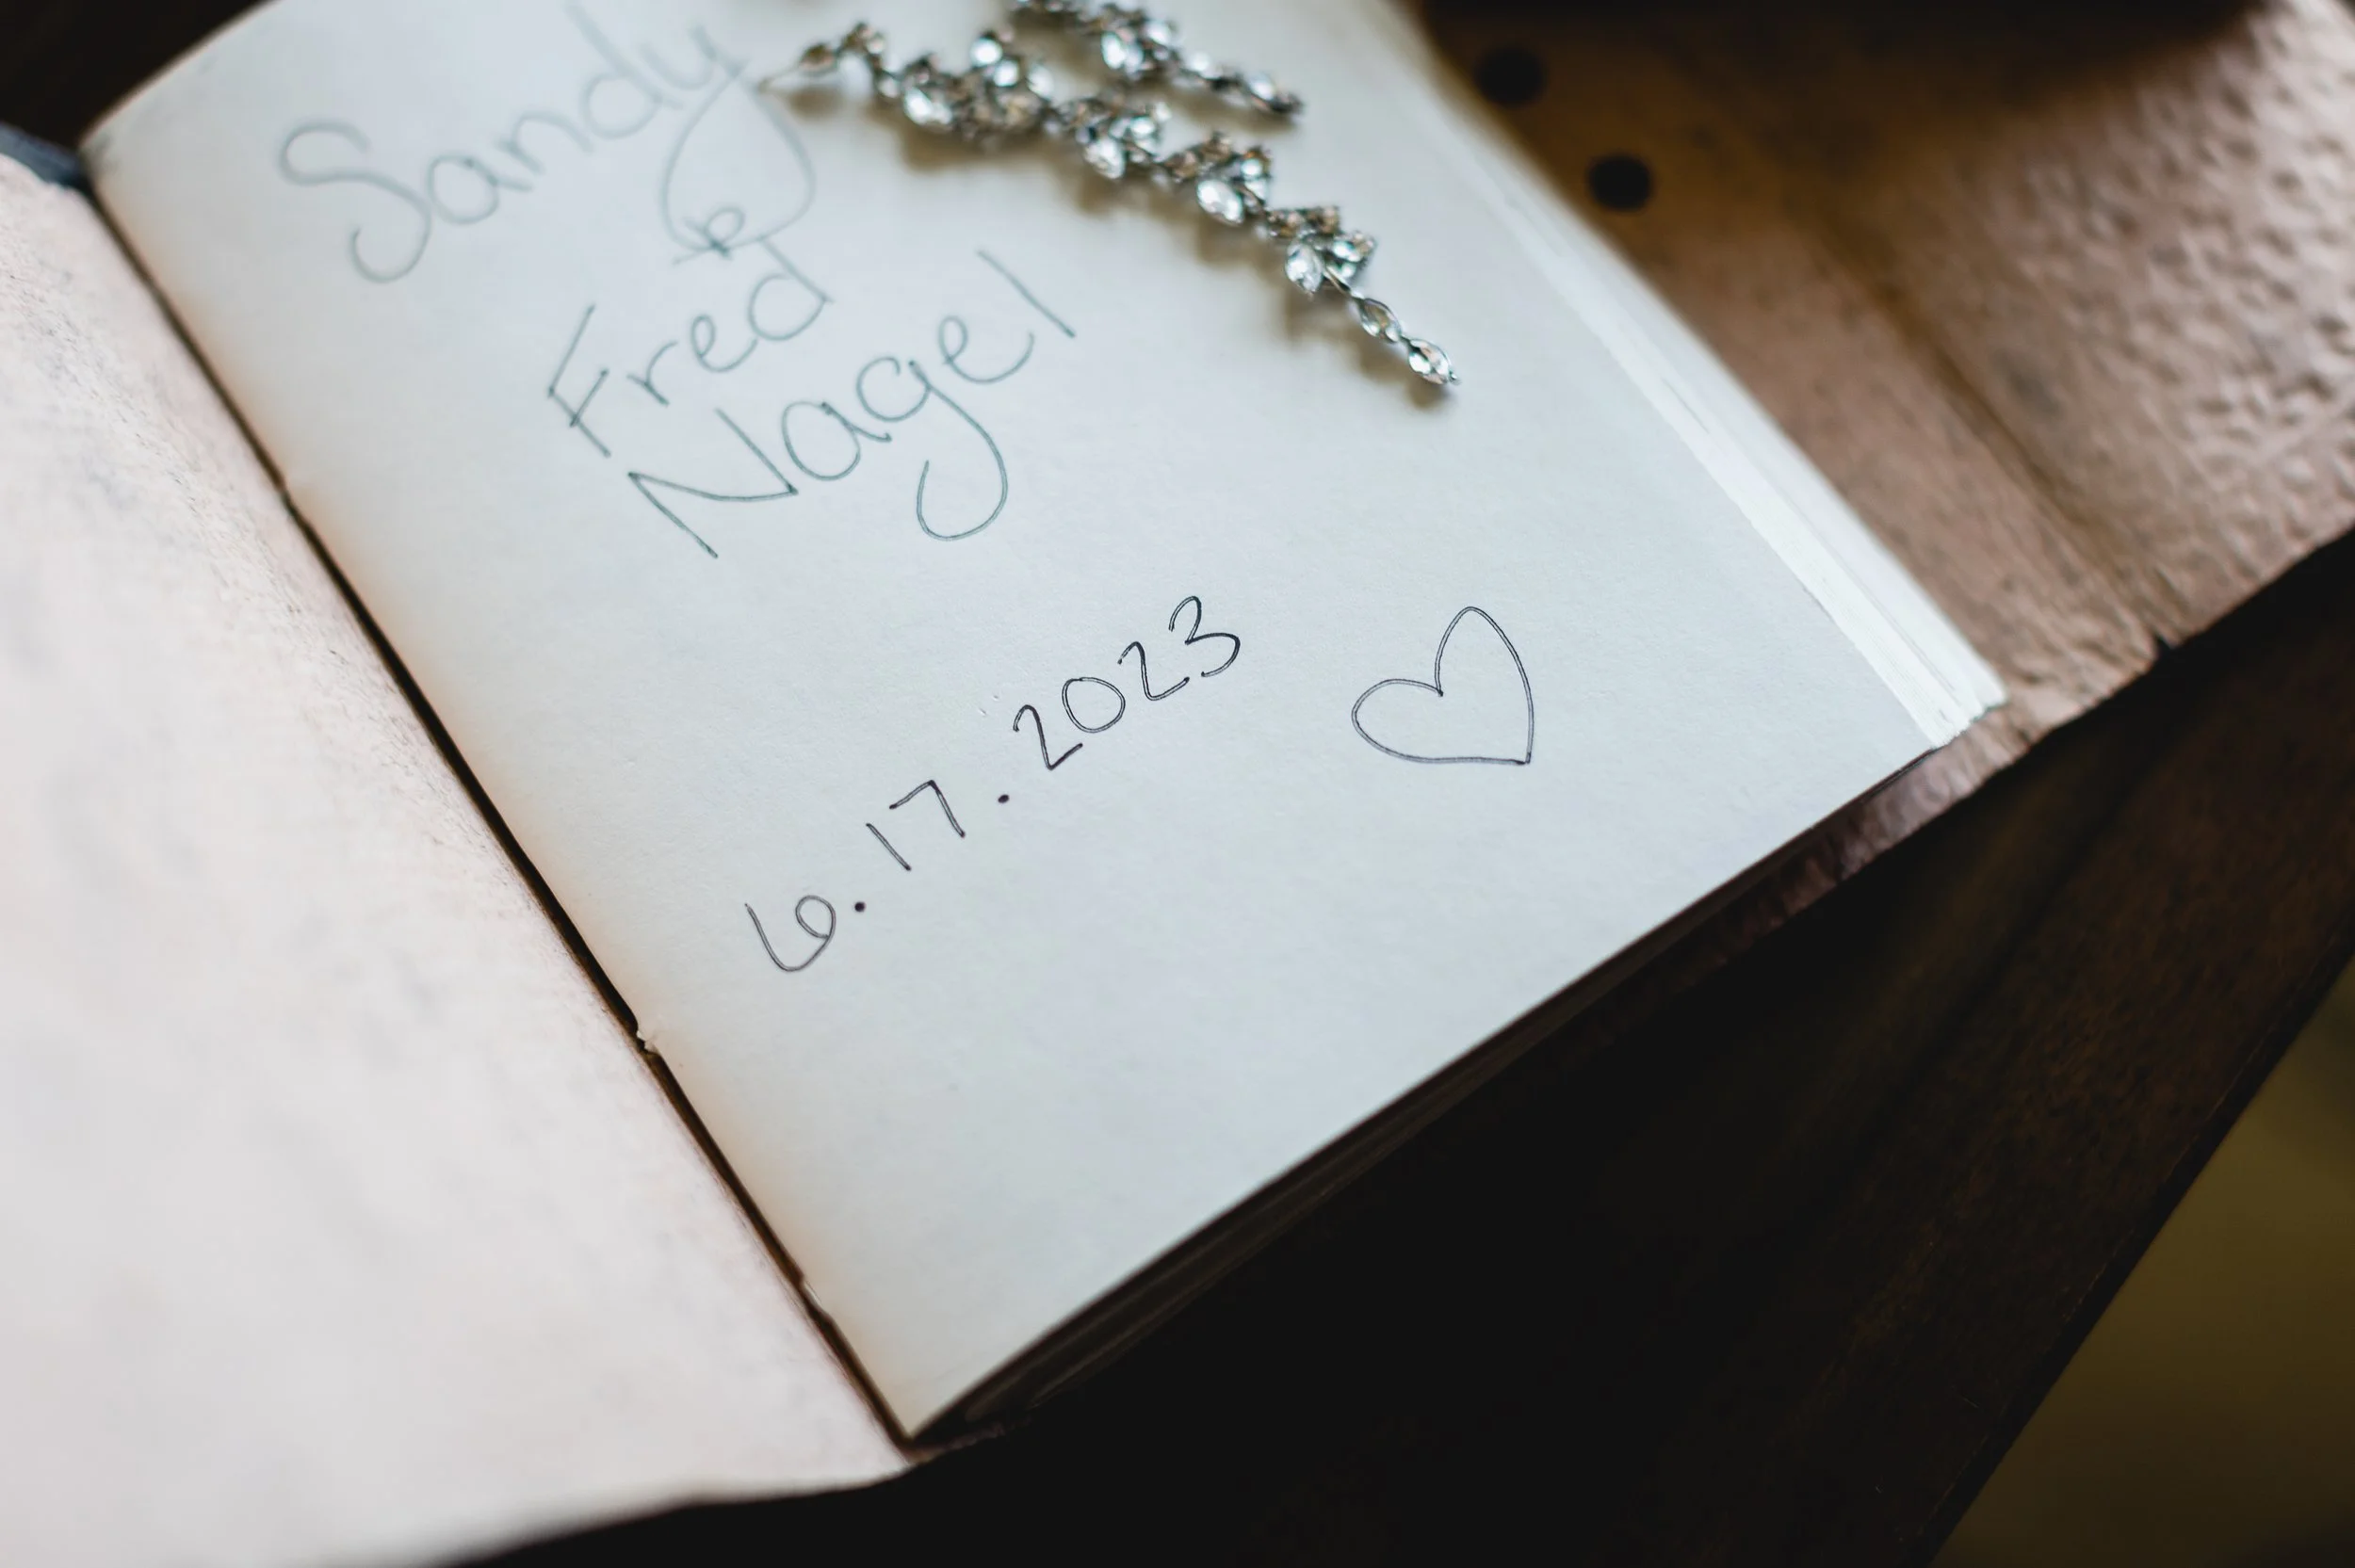 Sandy
&
Fred
Nagel
6.17.2023